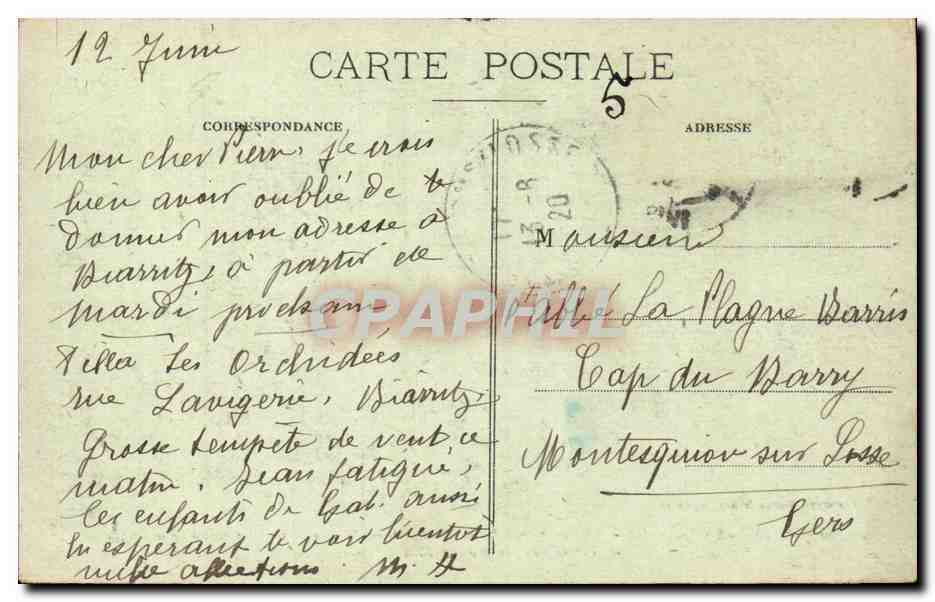 12 Juin
CARTE POSTALE
5
CORRESPONDANCE
ADRESSE
Mon cher Pierre, je crois
bien avoir oublié de te
donner mon adresse à
Biarritz, à partir de
mardi prochain
Villa Les Orchidées
rue Lavigerie, Biarritz,
Grosse tempête de vent ce
matin. Jean fatigué,
les enfants de Gab. aussi
En esperant te voir bientôt
mille affections. M. H
13 - 6
20
Monsieur
l'abbé La Plagne Barris
Cap du Barry
Montesquiou sur Losse
Gers
CPAPHIL